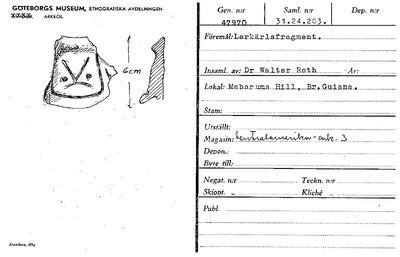 GÖTEBORGS MUSEUM, ETNOGRAFISKA AVDELNINGEN
ARKEOL.
6cm
Elanders, Gbg
Gen. n:r Saml. n:r Dep. n:r
47970 31.24.203.
Föremål: Lerkärlsfragment.
Insaml. av: Dr Walter Roth År:
Lokal: Mabaruma Hill, Br. Guiana.
Stam:
Utställt:
Magasin: Centralamerika - ark. 3
Depon.:
Byte till:
Negat. n:r Teckn. n:r
Skiopt. „ Kliché „
Publ.